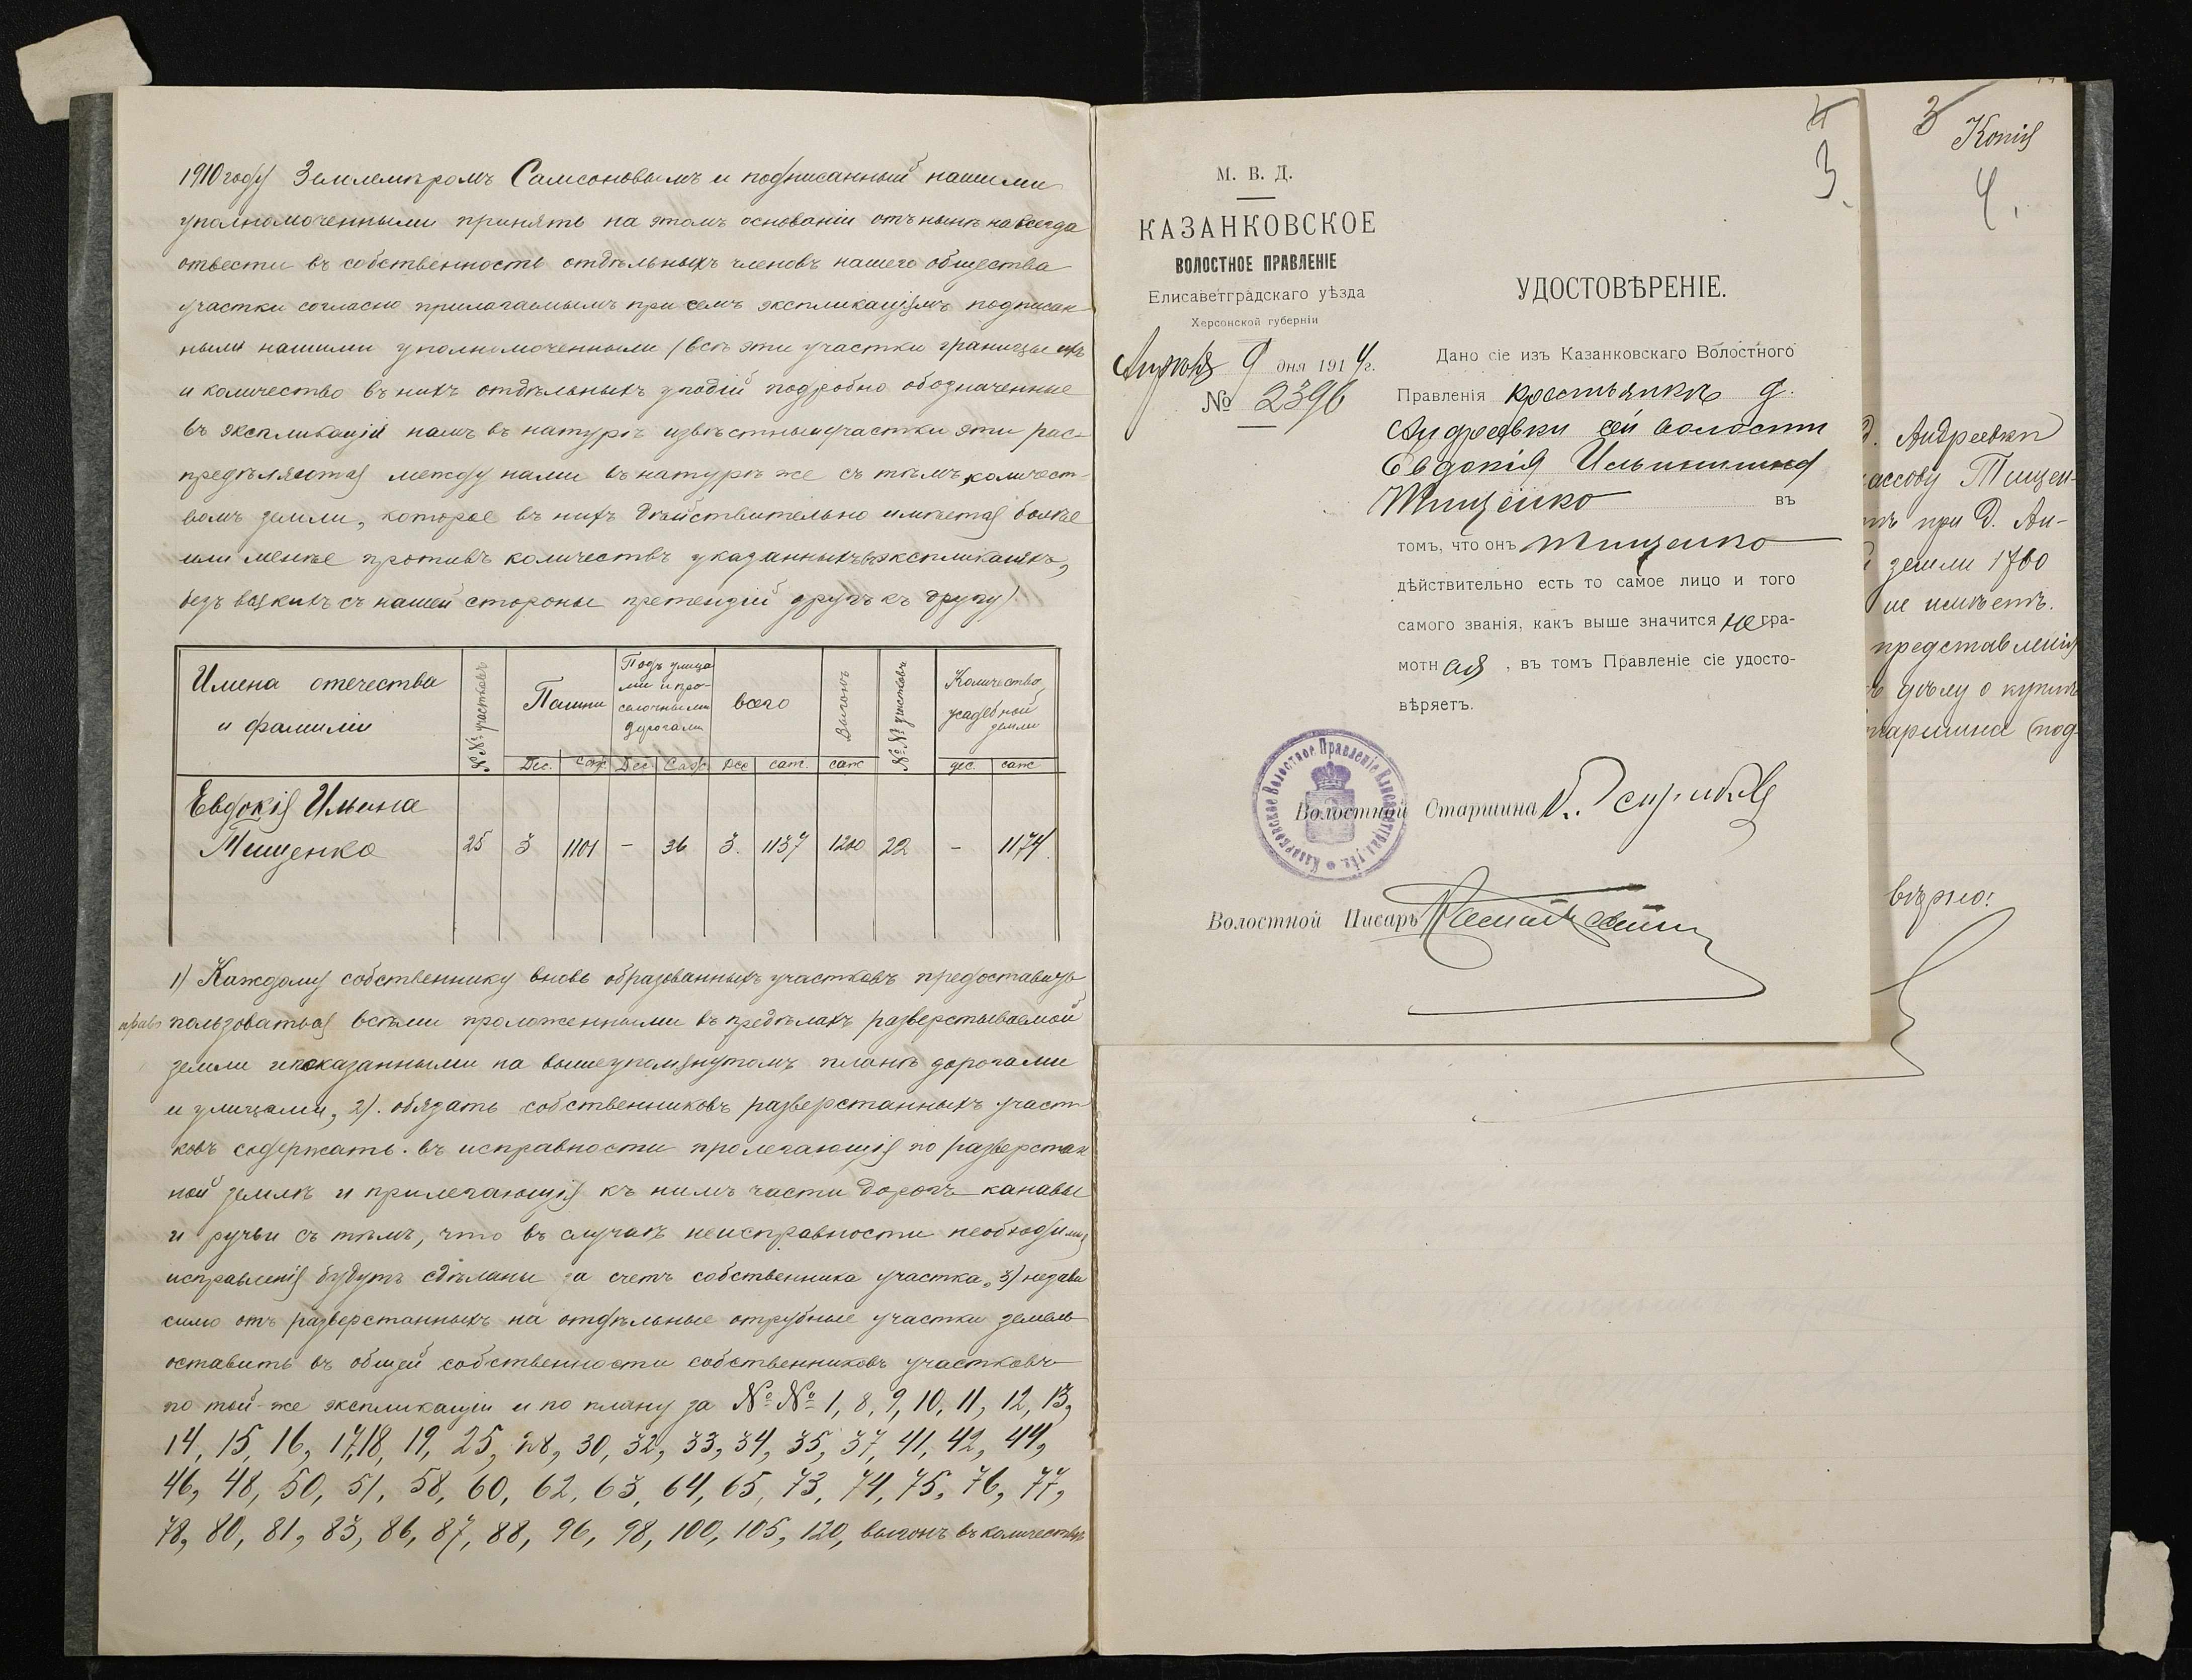 1910 году Землемѣромъ Самсоновымъ и подписанный нашими
уполномоченными принять на этомъ основаніи отъ нынѣ навсегда
отвести въ собственность отдѣльныхъ членовъ нашего общества
участки согласно прилагаемымъ при семъ экспликаціямъ подписан-
нымъ нашими уполномоченными (всѣ эти участки границы ихъ
и количество въ нихъ отдѣльныхъ угодій подробно обозначенные
въ экспликаціи намъ въ натурѣ извѣстны участки эти рас-
предѣляются между нами въ натурѣ же съ тѣмъ количест-
вомъ земли, которое въ нихъ дѣйствительно имѣется болѣе
или менѣе противъ количествъ указанныхъ въ экспликаціяхъ,
безъ всякихъ съ нашей стороны претензій другъ къ другу)
Имена отечества
и фамиліи
№№ участковъ
Пашни
Подъ улица
ми и про-
селочными
дорогами
всего
Выгонъ
№№ участковъ
Количество
усадебной
земли
Дес. саж Дес Саж Дес саж. саж дес. саж
Евдокія Ильина
Тищенко 25 3 1101 - 36 3. 1137 1200 22 - 1174
1) Каждому собственнику вновь образованныхъ участковъ предоставить
право пользоваться всѣми проложенными въ предѣлахъ разверстываемой
земли и показанными на вышеупомянутомъ планѣ дорогами
и улицами, 2). обязать собственниковъ разверстанныхъ участ
ковъ содержать въ исправности пролегающія по разверстан
ной землѣ и прилегающія къ нимъ части дорогъ канавы
и ручьи съ тѣмъ, что въ случаѣ неисправности необходимыя
исправленія будутъ сдѣланы за счетъ собственника участка, 3) незави
симо отъ разверстанныхъ на отдѣльные отрубные участки земель
оставить въ общей собственности собственниковъ участковъ
по той-же экспликаціи и по плану за №№ 1, 8, 9, 10, 11, 12, 13,
14, 15, 16, 17,18, 19, 25, 28, 30, 32, 33, 34, 35, 37, 41, 42, 44,
46, 48, 50, 51, 58, 60, 62, 63, 64, 65, 73, 74, 75, 76, 77,
78, 80, 81, 83, 86, 87, 88, 96, 98, 100, 105, 120, выгонъ въ количествѣ
4
3
М. В. Д.
КАЗАНКОВСКОЕ
ВОЛОСТНОЕ ПРАВЛЕНІЕ
Елисаветградскаго уѣзда
Херсонской губерніи
9 дня 1914г.
№ 2396
УДОСТОВѢРЕНІЕ.
Дано сіе изъ Казанковскаго Волостного
Правленія крестьянкѣ д.
Андреевки сей волости
Евдокія Ильинишна
Тищенко въ
томъ, что онъ Тищенко
дѣйствительно есть то самое лицо и того
самого званія, какъ выше значится негра-
мотная, въ томъ Правленіе сіе удосто-
вѣряетъ.
Казанковское Волостное Правленіе Елисаветград. уѣз.
Волостной Старшина
Волостной Писарь
3
Копія
4.
д. Андреевки
Тищен-
при д. Ан-
земли 1760
не имѣетъ.
представленія
дѣлу о куплѣ
старшина (под-
вѣрно: